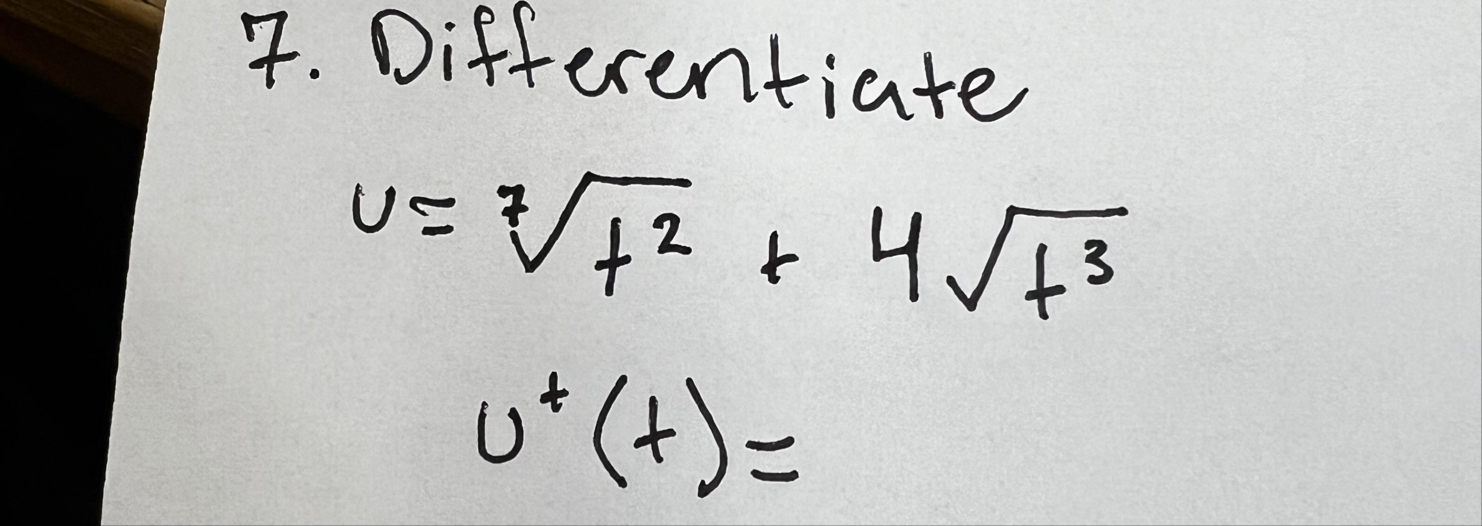 7. Differentiate
u = ⁷√t² + 4√t³
u⁺(t) =